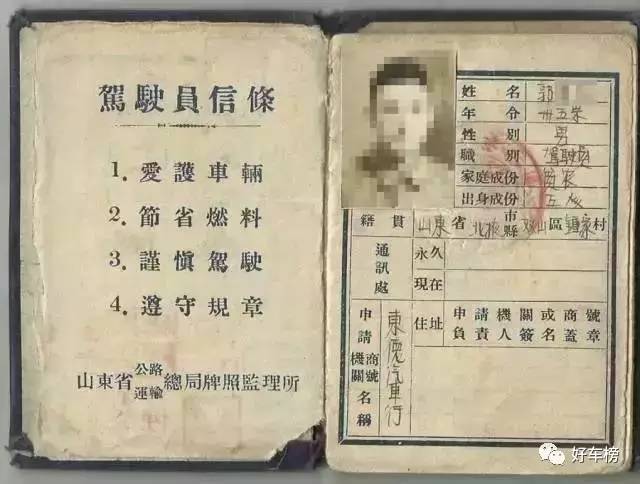 駕駛員信條
1. 愛護車輛
2. 節省燃料
3. 謹慎駕駛
4. 遵守規章
山東省公路運輸總局牌照監理所
姓名 郭
年令 卅五岁
性別 男
職別 駕駛員
家庭成份
出身成份
籍貫 山東省 市縣 区 村
通訊處
永久
現在
住址
申請機關商號名稱
東德汽車行
申請機關或商號
負責人簽名蓋章
好车榜